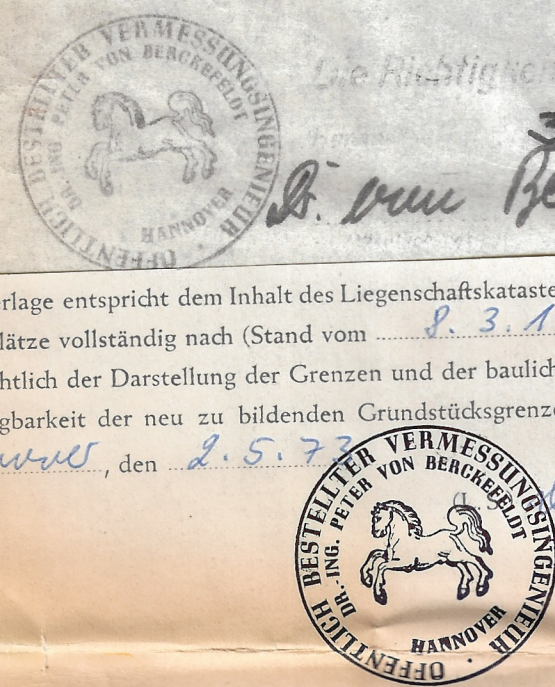 ÖFFENTLICH BESTELLTER VERMESSUNGSINGENIEUR
DR.-ING. PETER VON BERCKEFELDT
HANNOVER
Die Richtigkei
Dr. von Be
erlage entspricht dem Inhalt des Liegenschaftskataste
lätze vollständig nach (Stand vom 8. 3. 1
htlich der Darstellung der Grenzen und der baulich
gbarkeit der neu zu bildenden Grundstücksgrenze
, den 2. 5. 73
(L. S.
ÖFFENTLICH BESTELLTER VERMESSUNGSINGENIEUR
DR.-ING. PETER VON BERCKEFELDT
HANNOVER